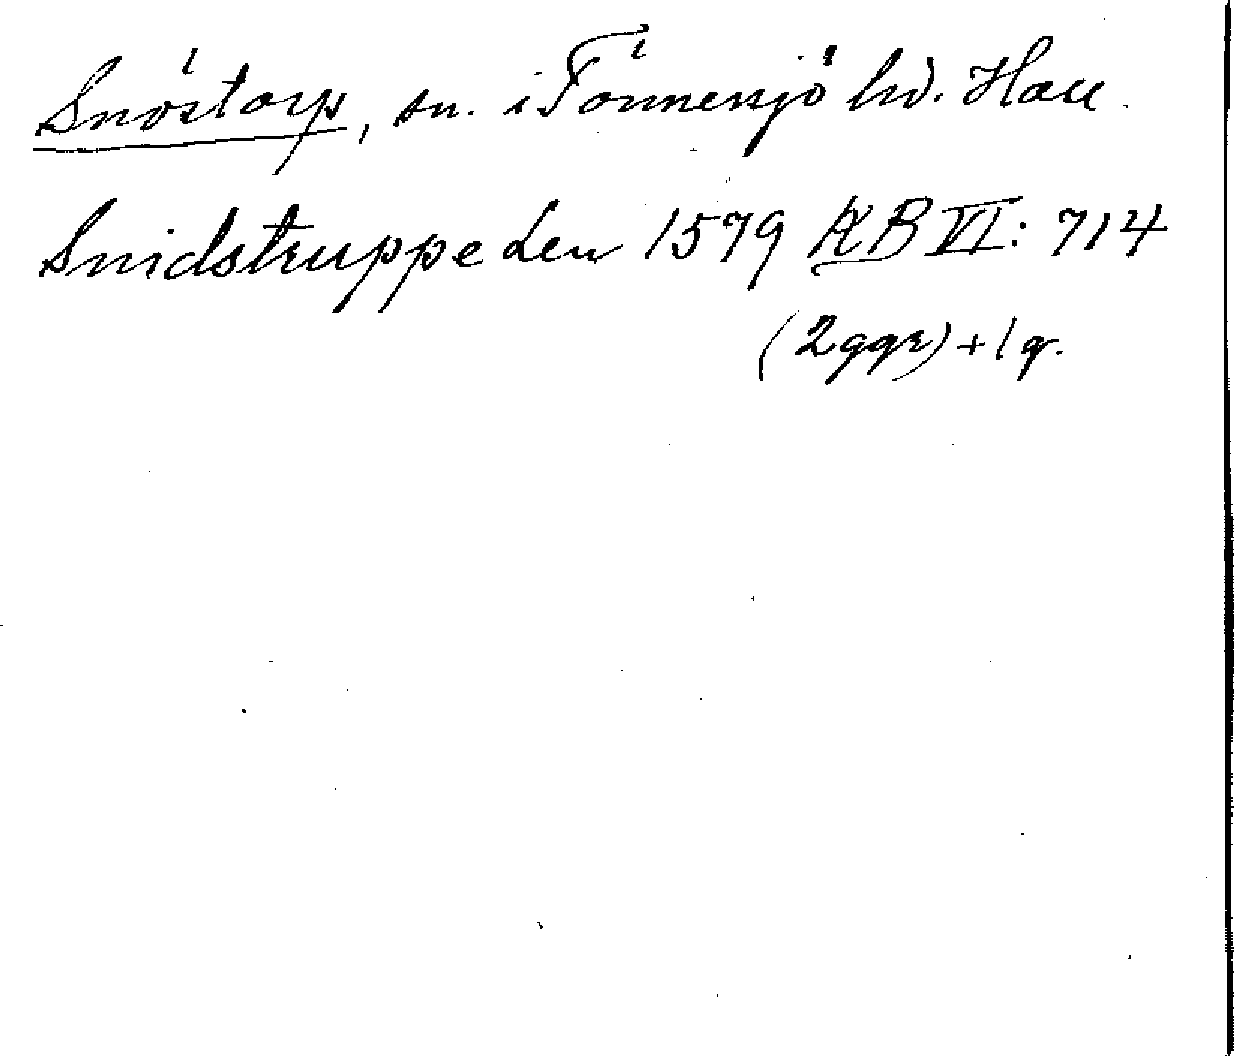 Snöstorp, sn. i Tönnersjö hd. Hall.
Snidstruppe Len 1579 KB VI: 714
(2ggr) + 1 g.